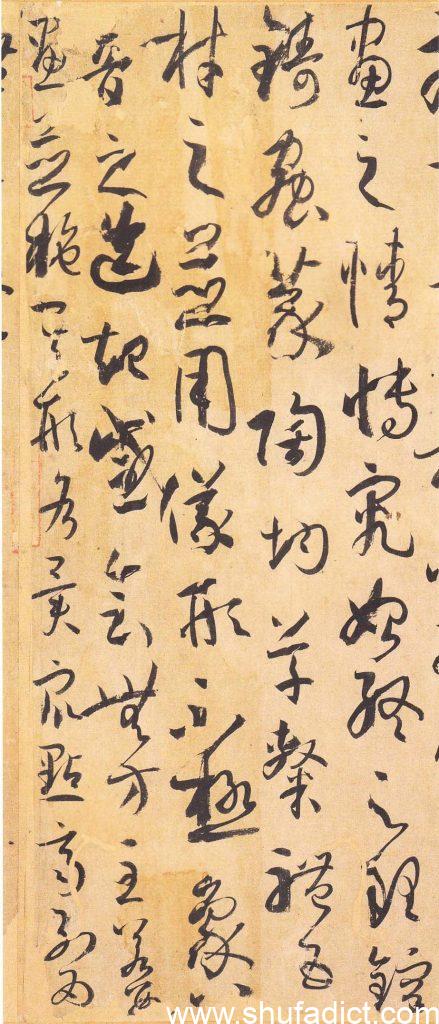 畫之情博究始終之理鎔
鑄蟲篆陶均草隸體五
材之並用儀形不極象八
音之迭起感會無方至若數
畫並施其形各異衆點齊列為
www.shufadict.com